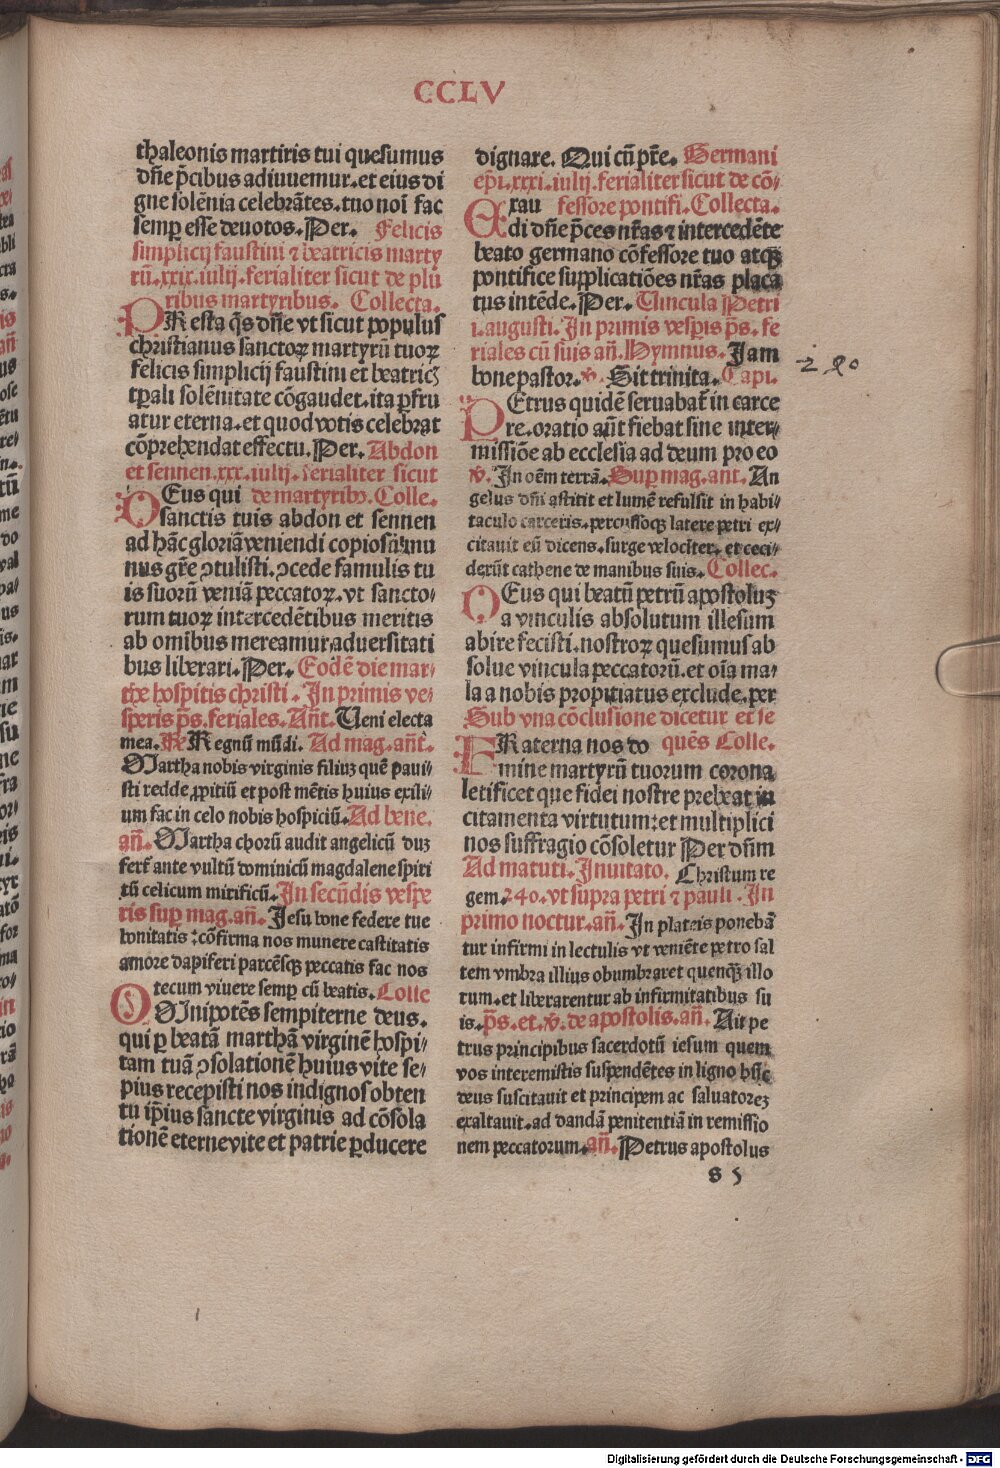 CCLV
thaleonis martiris tui quesumus
dñe p̃cibus adiuuemur.et eius di
gne solẽnia celebrãtes.tuo noĩ fac
semꝑ esse deuotos.Per. Felicis
simplicij faustini ⁊ beatricis marty
rũ.xxix.iulij.ferialiter sicut de plu
ribus martyribus. Collecta.
PResta q̃s dñe vt sicut populus
christianus sanctoꝝ martyrũ tuoꝝ
felicis simplicij faustini et beatricꝭ
tꝑali solẽnitate cõgaudet.ita ꝑfru
atur eterna.et quod votis celebrat
cõprehendat effectu.Per. Abdon
et sennen.xxx.iulij.ferialiter sicut
DEus qui de martyribꝰ.Colle.
sanctis tuis abdon et sennen
ad hãc gloriã veniendi copiosũ mu
nus grẽ ꝯtulisti.ꝯcede famulis tu
is suorũ veniã peccatoꝝ.vt sancto-
rum tuoꝝ intercedẽtibus meritis
ab omĩbus mereamur aduersitati
bus liberari.Per. Eodẽ die mar-
the hospitis christi. In primis ve-
speris p̃s.feriales.Añt. Ueni electa
mea. Re Regnũ mũdi. Ad mag.añt.
Martha nobis virginis filiuꝫ quẽ paui-
sti redde ꝓpitiũ et post mẽtis huius exili-
um fac in celo nobis hospiciũ. Ad bene.
añ. Martha chorũ audit angelicũ duꝫ
fert̃ ante vultũ dominicũ magdalene spiri
tũ celicum mirificũ. In secũdis vespe
ris suꝑ mag.añ. Jesu bone federe tue
bonitatis : cõfirma nos munere castitatis
amore dapiferi parcẽsqꝫ peccatis fac nos
tecum viuere semꝑ cũ beatis. Colle
OMnipotẽs sempiterne deus.
qui ꝑ beatã marthã virginẽ hospi-
tam tuã ꝯsolationẽ huius vite se-
pius recepisti nos indignos obten
tu ip̃ius sancte virginis ad cõsola
tionẽ eterne vite et patrie ꝑducere
dignare. Qui cũ pr̃e. Germani
ep̃i.xxxi.iulij.ferialiter sicut de cõ-
Exau fessore pontifi.Collecta.
di dñe p̃ces nr̃as ⁊ intercedẽte
beato germano cõfessore tuo atqꝫ
pontifice supplicatiões nr̃as placa
tus intẽde.Per. Uincula Petri
i.augusti.In primis vesꝑis p̃s.fe
riales cũ suis añ.Hymnus. Jam
bone pastor. ꝟ. Sit trinita. Capi.
PEtrus quidẽ seruabat̃ in carce
re.oratio aũt fiebat sine inter-
missiõe ab ecclesia ad deum pro eo
ꝟ. In oẽm terrã. Suꝑ mag.ant. An
gelus dñi astitit et lumẽ refulsit in habi-
taculo carceris.percussoqꝫ latere petri ex-
citauit eũ dicens.surge velociter. et ceci-
derũt cathene de manibus suis. Collec.
DEus qui beatũ petrũ apostoluꝫ
a vinculis absolutum illesum
abire fecisti.nostroꝝ quesumus ab
solue vincula peccatorũ.et oĩa ma-
la a nobis propitiatus exclude.per
Sub vna cõclusione dicetur et se
FRaterna nos do quẽs Colle.
mine martyrũ tuorum corona
letificet que fidei nostre prebeat in
citamenta virtutum:et multiplici
nos suffragio cõsoletur Per dñm
Ad matuti. Inuitato. Christum re
gem.240.vt supra petri ⁊ pauli. In
primo noctur.añ. In plateis ponebã
tur infirmi in lectulis vt veniẽte petro sal
tem vmbra illius obumbraret quenqꝫ illo
rum.et liberarentur ab infirmitatibus su
is. p̃s.et.ꝟ.de apostolis.añ. Ait pe
trus principibus sacerdotũ iesum quem
vos interemistis suspendẽtes in ligno hũc
deus suscitauit et principem ac saluatoreꝫ
exaltauit.ad dandã penitentiã in remissio
nem peccatorum. añ. Petrus apostolus
Digitalisierung gefördert durch die Deutsche Forschungsgemeinschaft - DFG